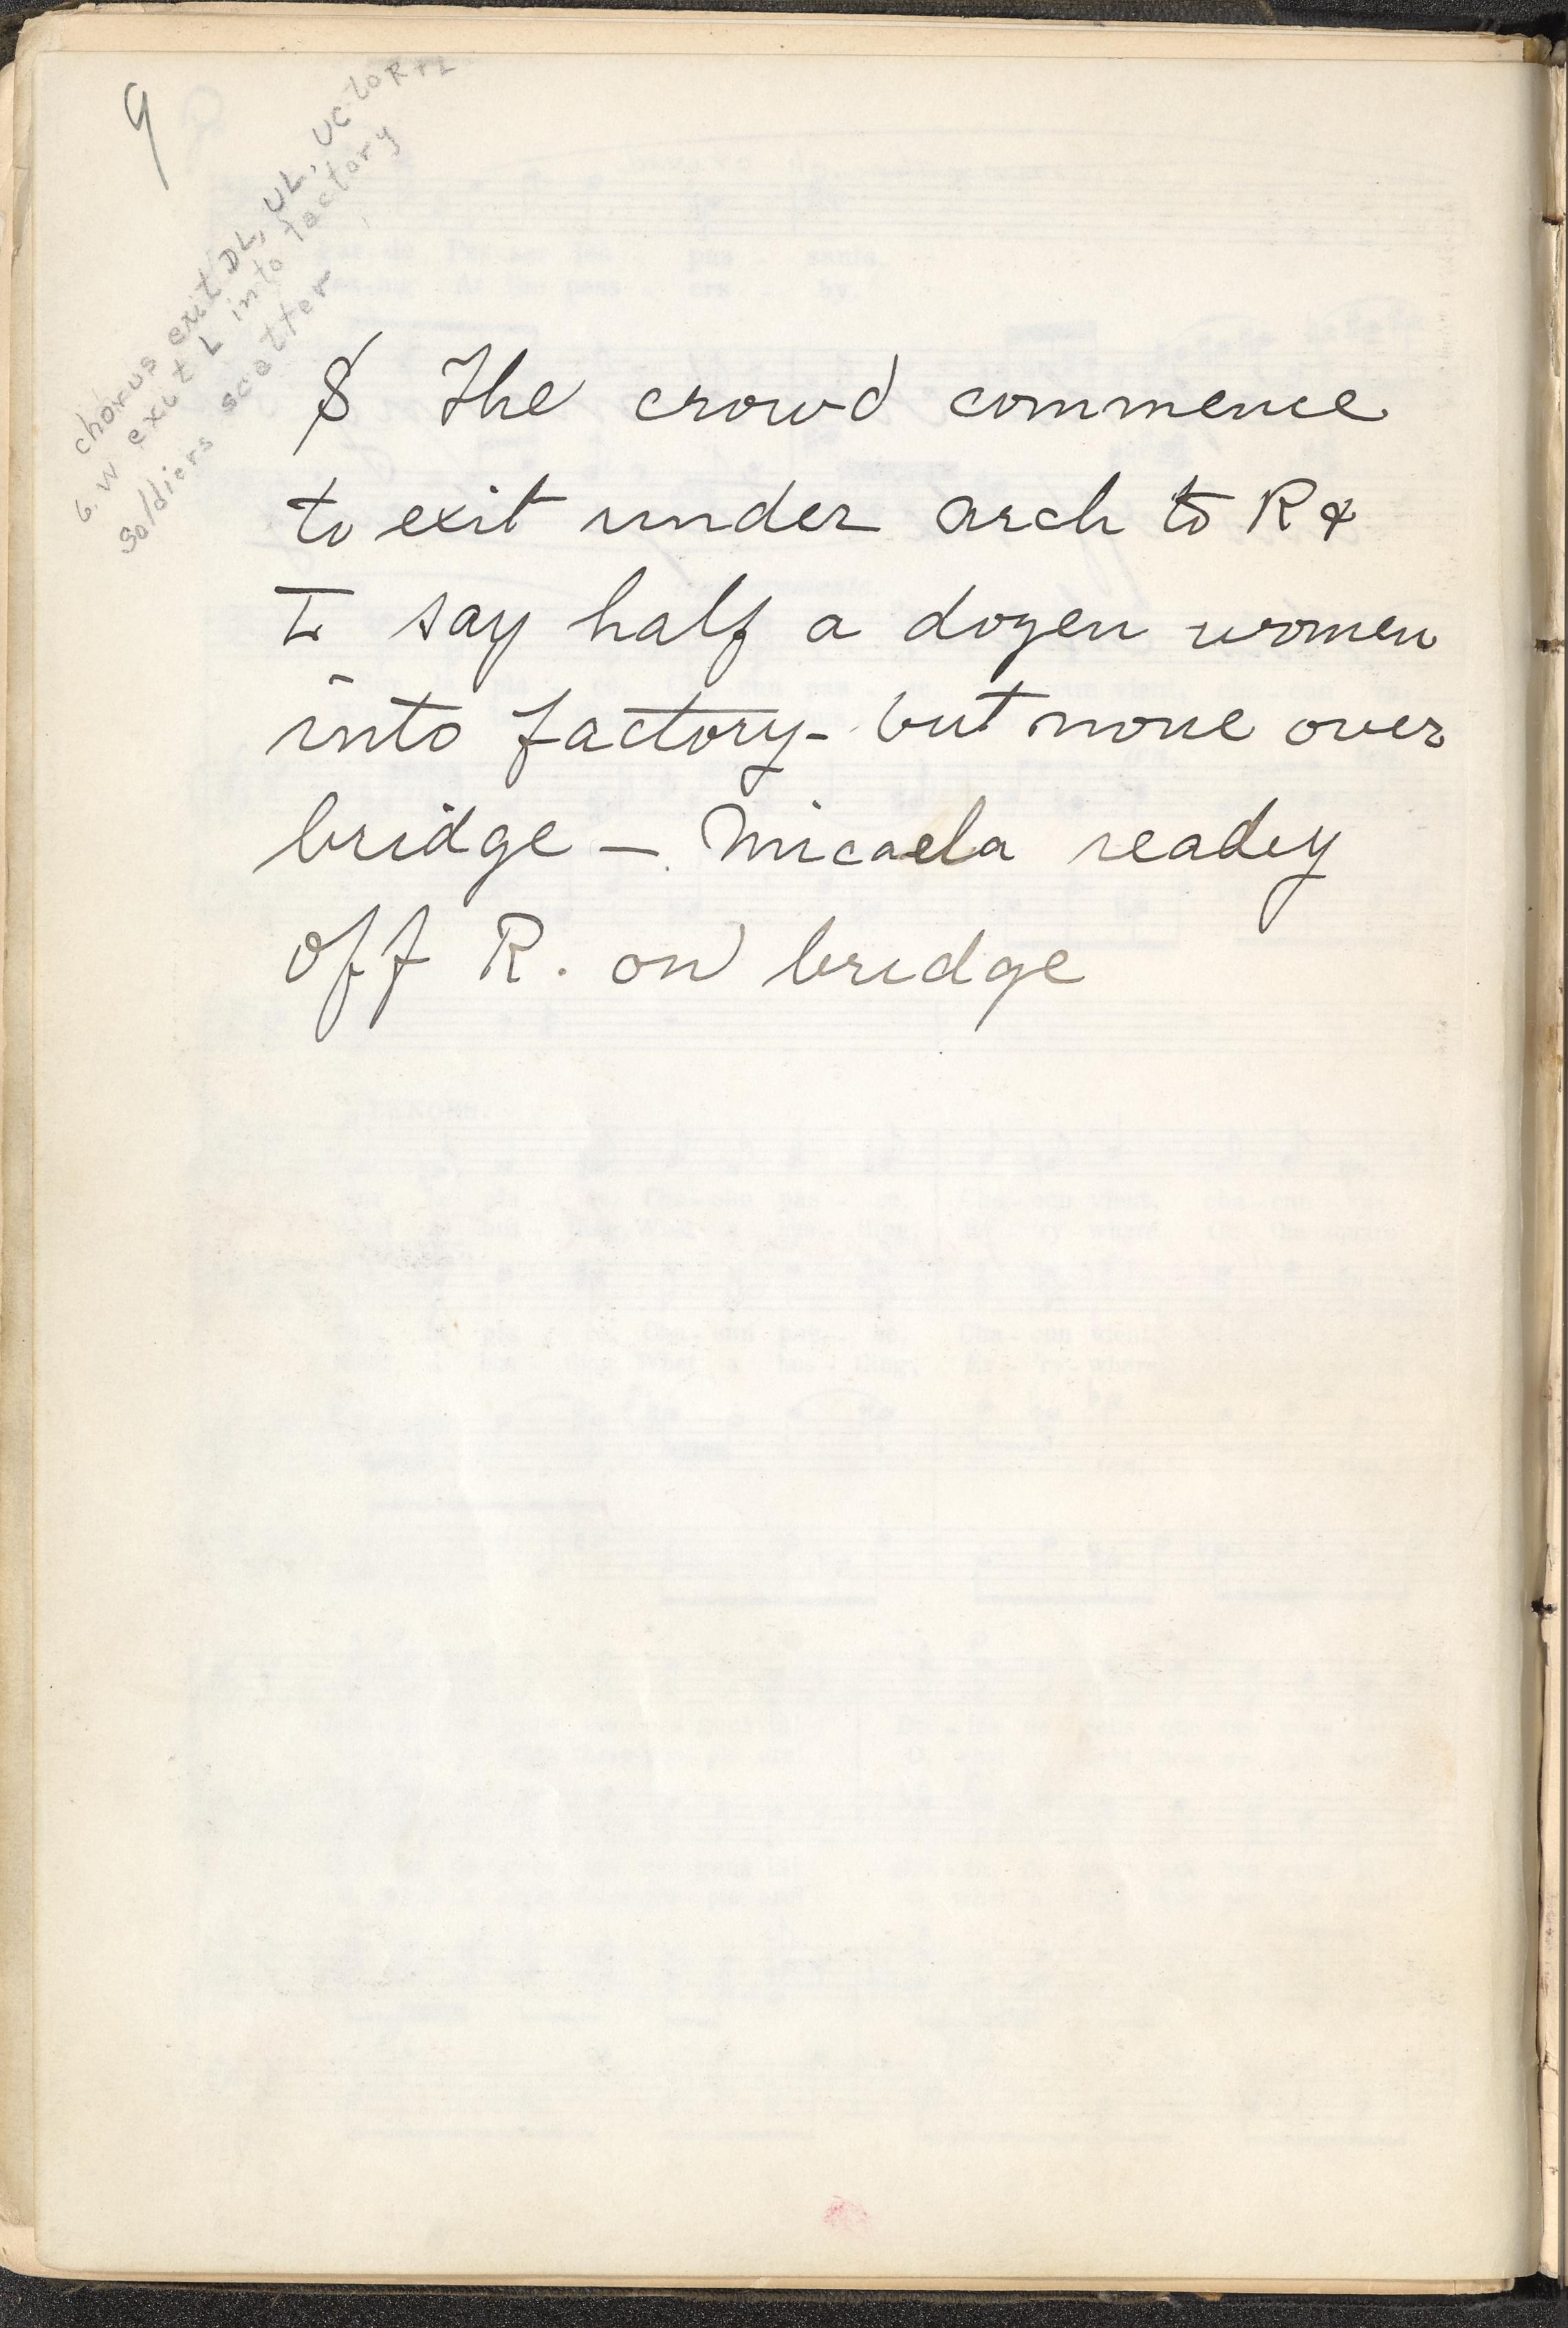 9
chorus exit DL, UL, UC to R + L
6 W exit L into factory
soldiers scatter
$ The crowd commence
to exit under arch to R &
L say half a dozen women
into factory - but none over
bridge - Micaela ready
off R. on bridge